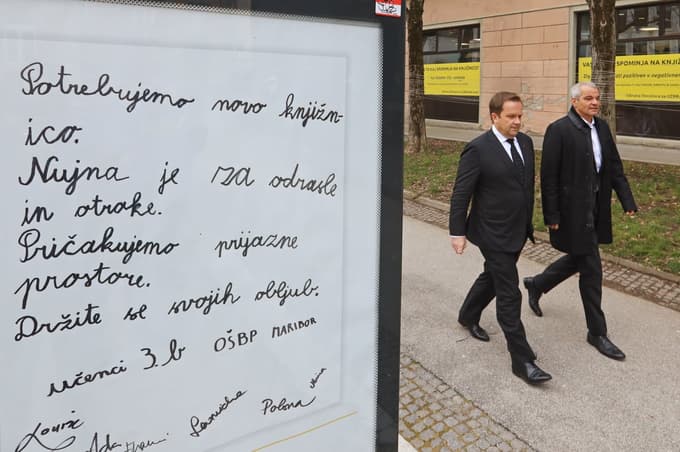 Potrebujemo novo knjižn-
ico.
Nujna je za odrasle
in otroke.
Pričakujemo prijazne
prostore.
Držite se svojih obljub.
Učenci 3.b OŠBP MARIBOR
Polona
SPOMINJA NA KNJIŽNICO?